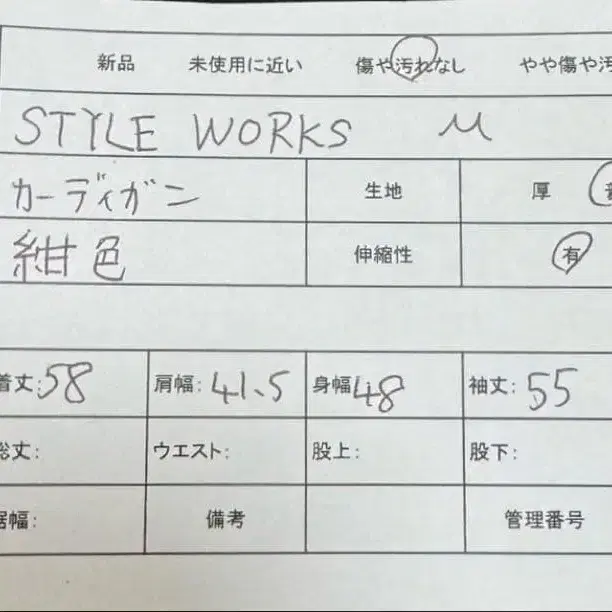 新品 未使用に近い 傷や汚れなし やや傷や汚
STYLE WORKS M
カーディガン 生地 厚
紺色 伸縮性 有
着丈:58 肩幅: 41.5 身幅48 袖丈: 55
総丈: ウエスト: 股上: 股下:
裾幅: 備考 管理番号